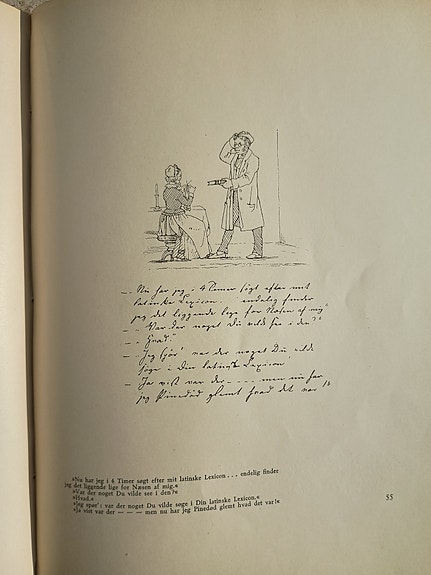 — „Nu har jeg i 4 Timer søgt efter mit
latinske Lexicon . . . endelig finder
jeg det liggende lige for Næsen af mig“
— „Var der noget Du vilde see i den?“
— „Hvad.“
— „Jeg spør' var der noget Du vilde
søge i Din latinske Lexicon
— Ja vist var der — — — men nu har
jeg Pinedød glemt hvad det var!“
»Nu har jeg i 4 Timer søgt efter mit latinske Lexicon . . . endelig finder
jeg det liggende lige for Næsen af mig.«
»Var der noget Du vilde see i den?«
»Hvad.«
»Jeg spør': var der noget Du vilde søge i Din latinske Lexicon.«
»Ja vist var der — — — men nu har jeg Pinedød glemt hvad det var!«
55